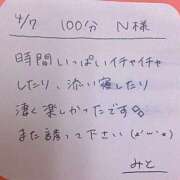 4/7 100分 N様
時間いっぱいイチャイチャ
したり、添い寝したり
凄く楽しかったです
また誘って下さい(*'ω'*)
みと